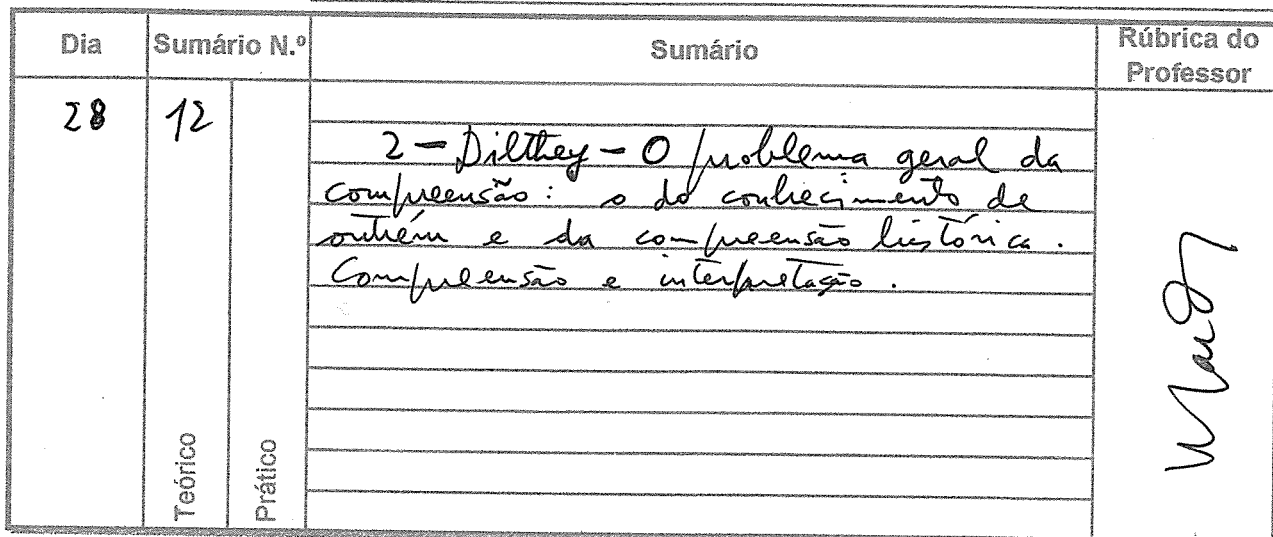 Dia Sumário N.º Sumário Rúbrica do Professor
28 12
2 – Dilthey – O problema geral da
compreensão: o do conhecimento de
outrém e da compreensão histórica.
Compreensão e interpretação.
Teórico Prático